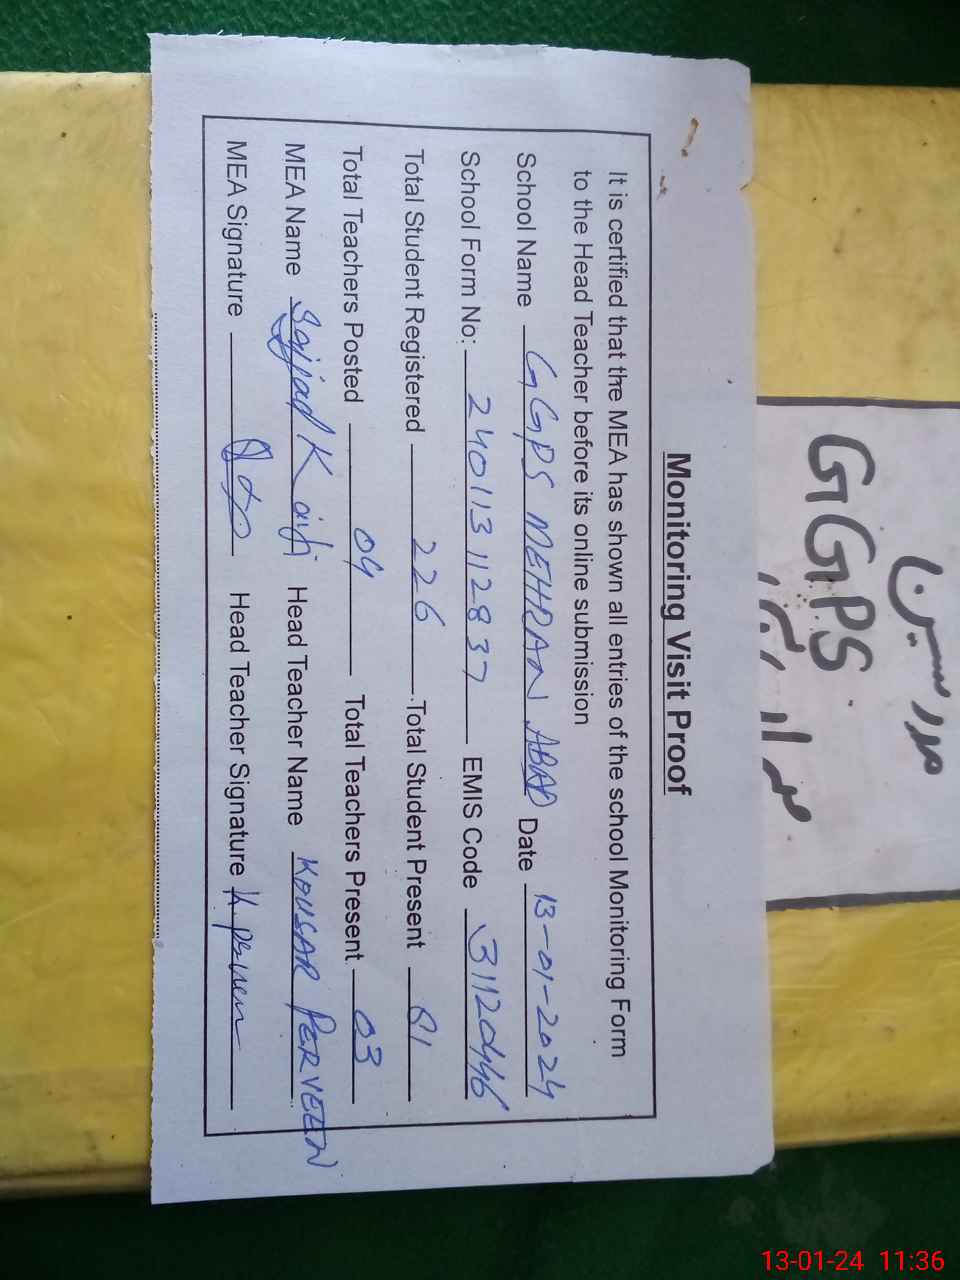 Monitoring Visit Proof
It is certified that the MEA has shown all entries of the school Monitoring Form
to the Head Teacher before its online submission
School Name GGPS MEHRAN ABAD Date 13-01-2024
School Form No: 2401131128 37 EMIS Code 31120446
Total Student Registered 226 Total Student Present 61
Total Teachers Posted 04 Total Teachers Present 03
MEA Name Sajjad Kaifi Head Teacher Name KOUSAR PERVEEN
MEA Signature Head Teacher Signature K. perveen
GGPS
13-01-24 11:36